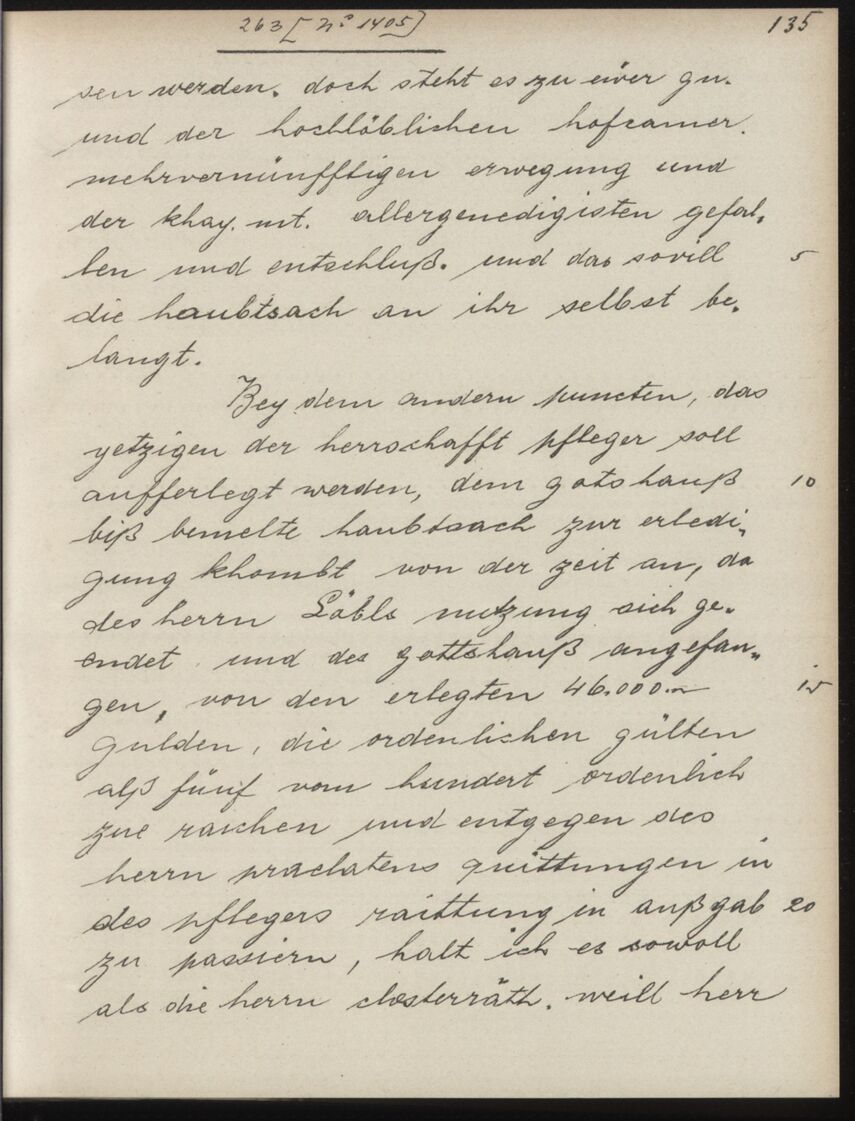 263 [No 1405]
135
sen werden. doch steht es zu eüer gn.
und der hochlöblichen hofcamer.
mehrvernünfftigen erwegung und
der khay. mt. allergenedigisten gefal„
len und entschluß. und das sovill 5
die haubtsach an ihr selbst be„
langt.
Bey dem andern puncten, das
yetzigen der herrschafft pfleger soll
aufferlegt werden, dem gotshauß 10
biß bemelte haubtsach zur erledi„
gung khombt von der zeit an, da
des herrn Löbls nutzung sich ge„
endet und des gottshauß angefan„
gen, von den erlegten 46.000. 15
gulden, die ordenlichen gülten
alß fünf vom hundert ordenlich
zue raichen und entgegen des
herrn praelatens quittungen in
des pflegers raittung in außgab 20
zu passiern, halt ich es sowoll
als die herrn closterräth. weill herr